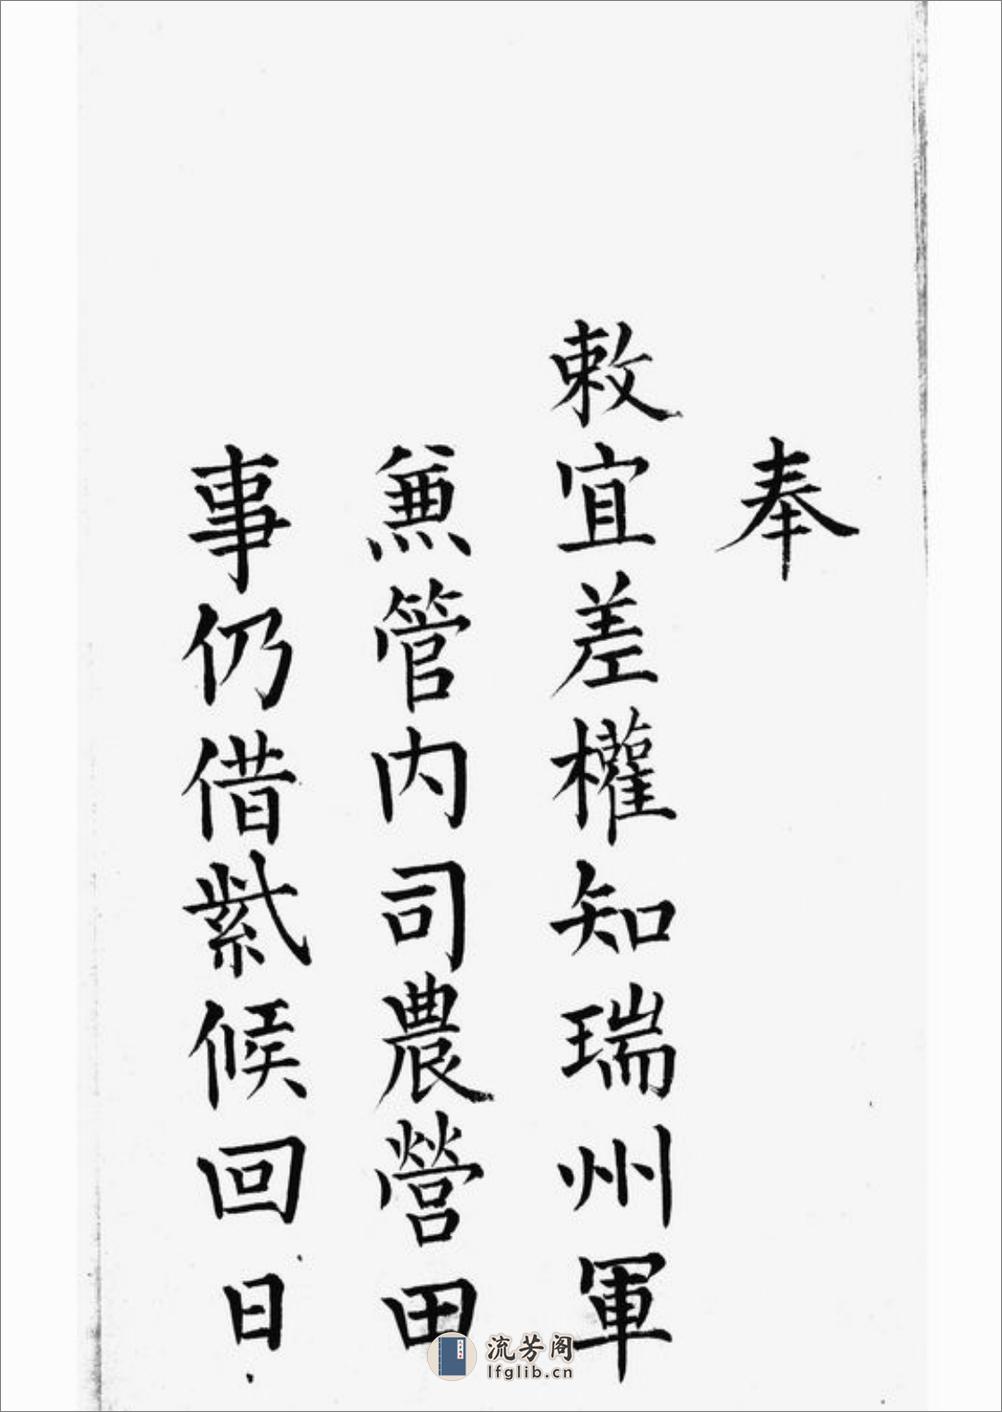 奉
敕宜差權知瑞州軍
兼管内司農營田
事仍借紫候回日
流芳阁
lfglib.cn